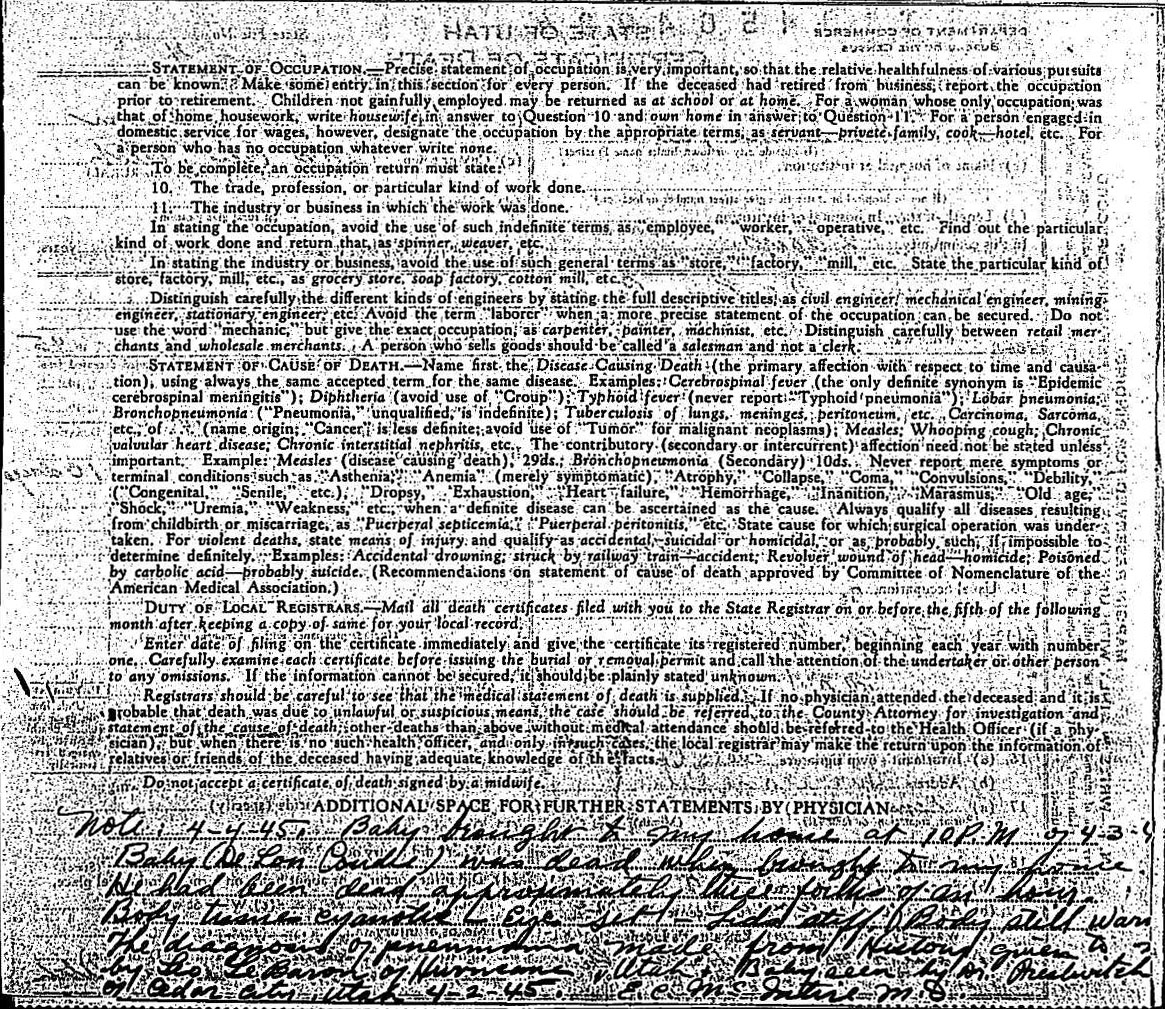 STATE OF UTAH
CERTIFICATE OF DEATH
DEPARTMENT OF COMMERCE
BUREAU OF THE CENSUS
STATEMENT OF OCCUPATION.—Precise statement of occupation is very important, so that the relative healthfulness of various pursuits
can be known. Make some entry in this section for every person. If the deceased had retired from business, report the occupation
prior to retirement. Children not gainfully employed may be returned as at school or at home. For a woman whose only occupation was
that of home housework, write housewife in answer to Question 10 and own home in answer to Question 11. For a person engaged in
domestic service for wages, however, designate the occupation by the appropriate terms, as servant—private family, cook—hotel, etc. For
a person who has no occupation whatever write none.
To be complete, an occupation return must state:
10. The trade, profession, or particular kind of work done.
11. The industry or business in which the work was done.
In stating the occupation, avoid the use of such indefinite terms as "employee," "worker," "operative," etc. Find out the particular
kind of work done and return that, as spinner, weaver, etc.
In stating the industry or business, avoid the use of such general terms as "store," "factory," "mill," etc. State the particular kind of
store, factory, mill, etc., as grocery store, soap factory, cotton mill, etc.
Distinguish carefully the different kinds of engineers by stating the full descriptive titles, as civil engineer, mechanical engineer, mining
engineer, stationary engineer, etc. Avoid the term "laborer" when a more precise statement of the occupation can be secured. Do not
use the word "mechanic," but give the exact occupation, as carpenter, painter, machinist, etc. Distinguish carefully between retail mer-
chants and wholesale merchants. A person who sells goods should be called a salesman and not a clerk.
STATEMENT OF CAUSE OF DEATH.—Name first the Disease Causing Death (the primary affection with respect to time and causa-
tion), using always the same accepted term for the same disease. Examples: Cerebrospinal fever (the only definite synonym is "Epidemic
cerebrospinal meningitis"); Diphtheria (avoid use of "Croup"); Typhoid fever (never report "Typhoid pneumonia"); Lobar pneumonia;
Bronchopneumonia ("Pneumonia," unqualified, is indefinite); Tuberculosis of lungs, meninges, peritoneum, etc. Carcinoma, Sarcoma,
etc., of . . . (name origin; "Cancer" is less definite; avoid use of "Tumor" for malignant neoplasms); Measles; Whooping cough; Chronic
valvular heart disease; Chronic interstitial nephritis, etc. The contributory (secondary or intercurrent) affection need not be stated unless
important. Example: Measles (disease causing death), 29ds.; Bronchopneumonia (Secondary) 10ds. Never report mere symptoms or
terminal conditions such as "Asthenia," "Anemia" (merely symptomatic), "Atrophy," "Collapse," "Coma," "Convulsions," "Debility,"
("Congenital," "Senile," etc.), "Dropsy," "Exhaustion," "Heart failure," "Hemorrhage," "Inanition," "Marasmus," "Old age,"
"Shock," "Uremia," "Weakness," etc., when a definite disease can be ascertained as the cause. Always qualify all diseases resulting
from childbirth or miscarriage, as "Puerperal septicemia," "Puerperal peritonitis," etc. State cause for which surgical operation was under-
taken. For violent deaths, state means of injury and qualify as accidental, suicidal or homicidal, or as probably such, if impossible to
determine definitely. Examples: Accidental drowning; struck by railway train—accident; Revolver wound of head—homicide; Poisoned
by carbolic acid—probably suicide. (Recommendations on statement of cause of death approved by Committee of Nomenclature of the
American Medical Association.)
DUTY OF LOCAL REGISTRARS.—Mail all death certificates filed with you to the State Registrar on or before the fifth of the following
month after keeping a copy of same for your local record.
Enter date of filing on the certificate immediately and give the certificate its registered number, beginning each year with number
one. Carefully examine each certificate before issuing the burial or removal permit and call the attention of the undertaker or other person
to any omissions. If the information cannot be secured, it should be plainly stated unknown.
Registrars should be careful to see that the medical statement of death is supplied. If no physician attended the deceased and it is
probable that death was due to unlawful or suspicious means, the case should be referred to the County Attorney for investigation and
statement of the cause of death; other deaths than above without medical attendance should be referred to the Health Officer (if a phy-
sician), but when there is no such health officer, and only in such cases, the local registrar may make the return upon the information of
relatives or friends of the deceased having adequate knowledge of the facts.
Do not accept a certificate of death signed by a midwife.
ADDITIONAL SPACE FOR FURTHER STATEMENTS BY PHYSICIAN
Note: 4-4-45. Baby brought to my home at 10 P.M. of 4-3-4
Baby (De Lon ) was dead when brought to my home
He had been dead approximately three forths of an hour.
Body tissues cyanotic - Eyes set - Lids stiff. (Body still warm
The diagnosis of pneumonia made from History given to ?
by Leo LeBaron of Hurricane, Utah. Baby seen by Dr. Prestwitch
of Cedar City, Utah 4-2-45. E.C. McIntire M.D.